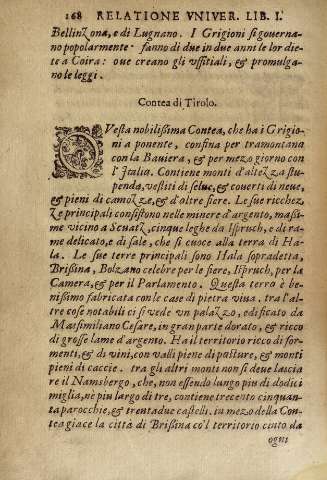 168 RELATIONE VNIVER. LIB. I.
Bellinzona, e di Lugnano. I Grigioni si gouerna-
no popolarmente. fanno di due in due anni le lor die-
te a Coira: oue creano gli vffitiali, & promulga-
no le leggi.
Contea di Tirolo.
QVesta nobilißima Contea, che ha i Grigio-
ni a ponente, confina per tramontana
con la Bauiera, & per mezo giorno con
l'Italia. Contiene monti d'altezza stu-
penda, vestiti di selue, & couerti di neue,
& pieni di camozze, & d'altre fiere. Le sue ricchez-
ze principali consistono nelle minere d'argento, maßi-
me vicino a Scuatz, cinque leghe da Ispruch, e di ra-
me delicato, e di sale, che si cuoce alla terra di Ha-
la. Le sue terre principali sono Hala sopradetta,
Brißina, Bolzano celebre per le fiere, Ispruch, per la
Camera, & per il Parlamento. Questa terra è be-
nißimo fabricata con le case di pietra viua. tra l'al-
tre cose notabili ci si vede vn palazzo, edificato da
Maßimiliano Cesare, in gran parte dorato, & ricco
di grosse lame d'argento. Ha il territorio ricco di for-
menti, & di vini, con valli piene di pasture, & monti
pieni di caccie. tra gli altri monti non si deue lascia
re il Namsbergo, che, non essendo lungo piu di dodici
miglia, ne piu largo di tre, contiene trecento cinquan-
ta parocchie, & trentadue castelli. in mezo della Con-
tea giace la città di Brißina co'l territorio cinto da
ogni